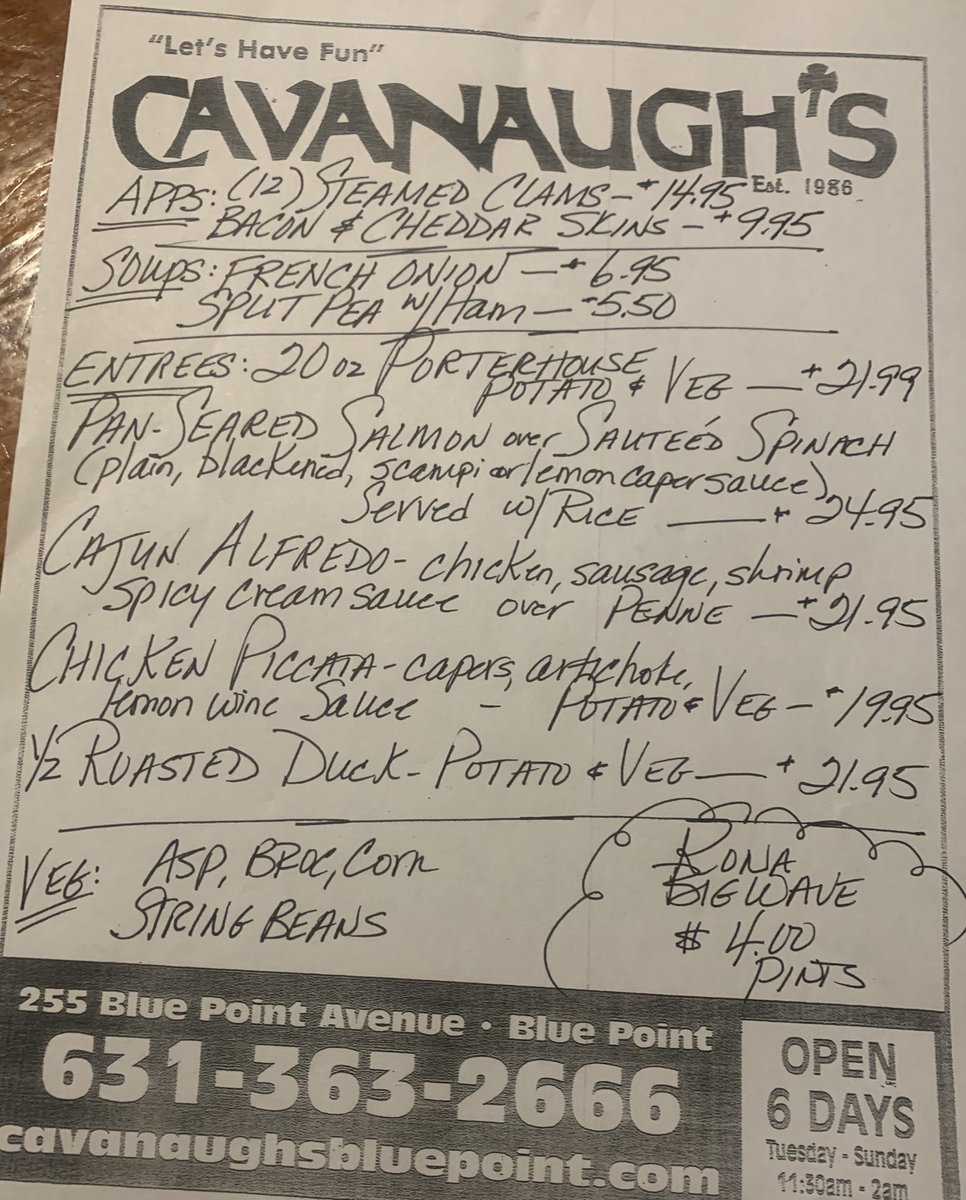 "Let's Have Fun"
CAVANAUGH'S
Est. 1986
APPS: (12) STEAMED CLAMS - $14.95
BACON & CHEDDAR SKINS - $9.95
SOUPS: FRENCH ONION - $6.95
SPLIT PEA w/Ham - $5.50
ENTREES: 20 oz PORTERHOUSE
POTATO & VEG - $21.99
PAN-SEARED SALMON over SAUTEÉD SPINACH
(plain, blackened, scampi or lemon caper sauce)
Served w/ RICE - $24.95
CAJUN ALFREDO - chicken, sausage, shrimp
spicy cream sauce over PENNE - $21.95
CHICKEN PICCATA - capers, artichoke,
lemon wine Sauce - POTATO & VEG - $19.95
1/2 ROASTED DUCK - POTATO & VEG - $21.95
VEG: ASP, BROC, Corn
STRING BEANS
KONA
BIG WAVE
$ 4.00
PINTS
255 Blue Point Avenue • Blue Point
631-363-2666
cavanaughsbluepoint.com
OPEN
6 DAYS
Tuesday - Sunday
11:30am - 2am